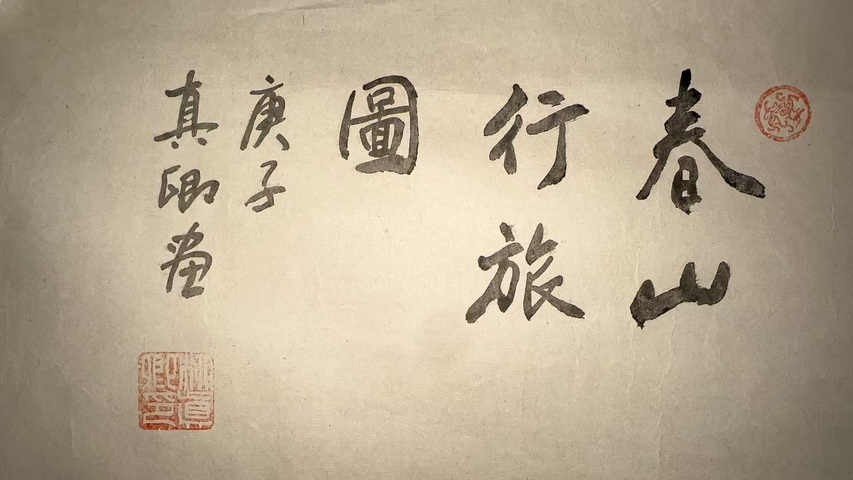 春山
行旅
圖
庚子
真卿畫